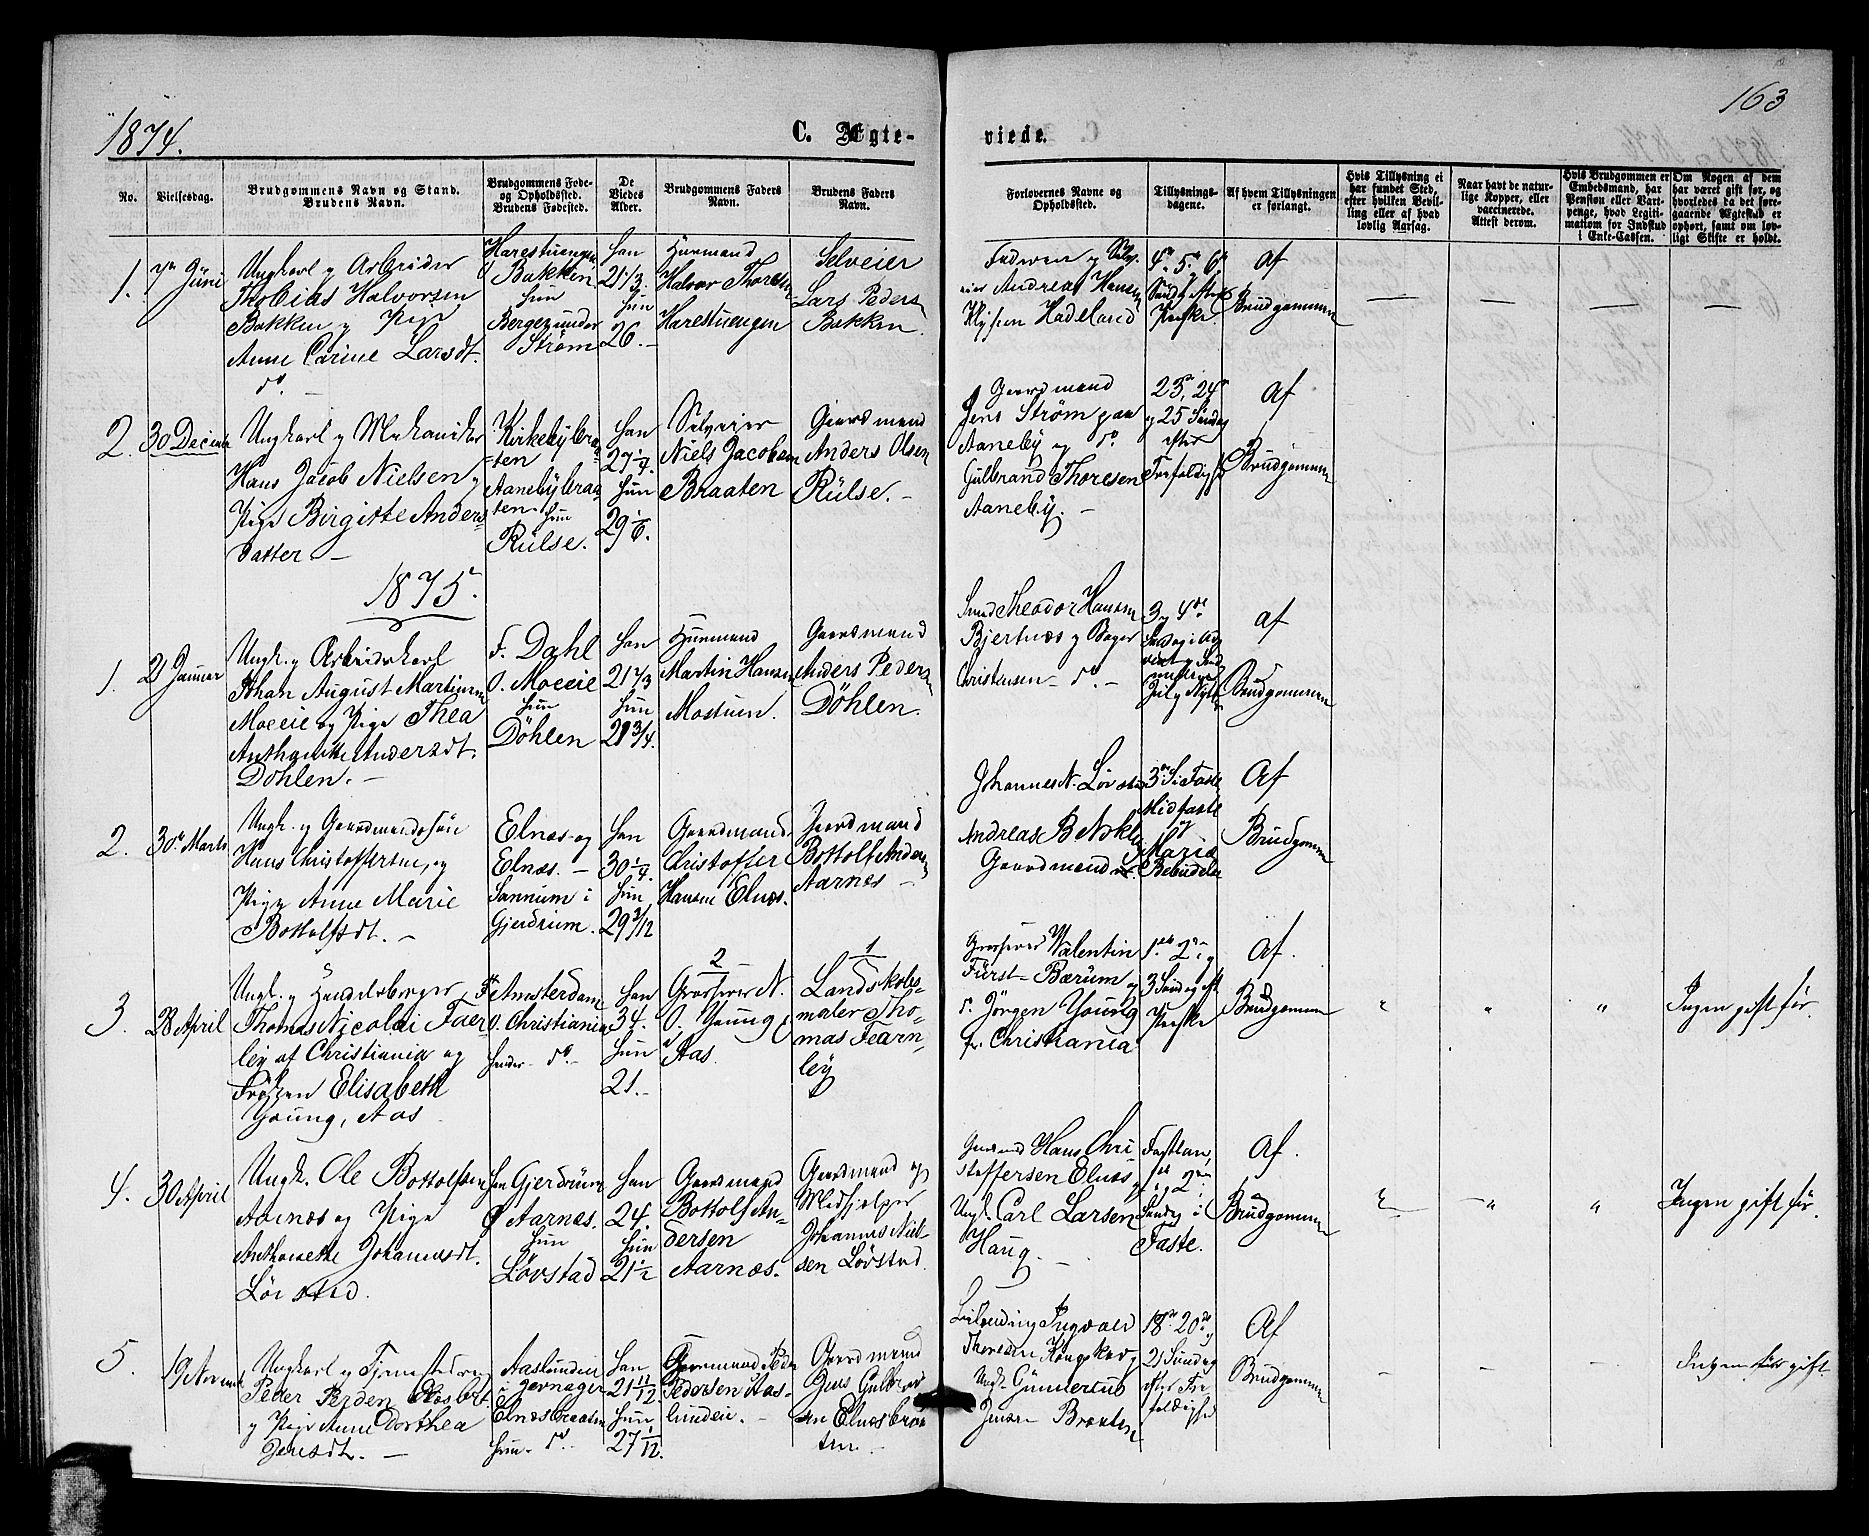 163
1874.
C. Ægte-
viede.
No.
Vielsesdag.
Brudgommens Navn og Stand.
Brudens Navn.
Brudgommens Føde-
og Opholdssted.
Brudens Fødested.
De
Viedes
Alder.
Brudgommens Faders
Navn.
Brudens Faders
Navn.
Forlovernes Navne og
Opholdssted.
Tillysnings-
dagene.
Af hvem Tillysningen
er forlangt.
Hvis Tillysning ei
har fundet Sted,
efter hvilken Bevil-
ling eller af hvad
lovlig Aarsag.
Naar havt de natur-
lige Kopper, eller
vaccinerede.
Attest derom.
Hvis Brudgommen er
Embedsmand, har
Pension eller Vart-
penge, hvad Legiti-
mation for Indskud
i Enke-Cassen.
Om Nogen af dem
har været gift før, og
hvorledes da det fore-
gaaende Ægteskab er
ophørt, samt om lov-
ligt Skifte er holdt.
1.
7de Juni
Ungkarl og Arbeider
Thobias Halvorsen
Bakken og Pige
Anne Carine Larsdt.
do –
Harestuengen
O Bakken
hun
Bergezunder
Strøm
han
21 1/3.
hun
26.–
Husmand
Halvor Thoresen
Harestuengen
Selveier
Lars Peders.
Bakken.
Andreas Hansen
Hadeland
4de 5te 6te
Paaske.
Af
Brudgommen
2.
30 Decem
Ungkarl og Mekaniker
Hans Jacob Nielsen og
Pige Birgitte Anders
datter –
Kirkebybraa-
ten
Aanebybraa-
ten
hun
Rülse.
han
27 1/4.
hun
29 1/6.
Selveier
Niels Jacobsen
Braaten
Gaardmand
Anders Olsen
Rülse. –
Gaardmand
Jens Strøm paa
Aaneby og do.
Gulbrand Thoresen
Aaneby. –
23de, 24de
og 25 Søndag
efter
Trefoldighed
Af
Brudgommen
1875.
1.
2 Januar
Ungk. og Arbeidskarl
Johan August Martinsen
Moeeie og Pige Thea
Anthonette Andersdt.
Döhlen. –
F. Dahl
O. Moeeie
hun
Döhlen
han
21 1/3
hun
21 3/4.
Husmand
Martin Hansen
Mostuen.
Gaardmand
Anders Peders.
Döhlen.
Theodor Hansen
Bjertnæs og
Christensen – do. –
3 og 4de
Af
Brudgommen
2.
30te Marts
Ungk. og Gaardmandssøn
Hans Christoffersen, og
Pige Anne Marie
Bottolfsdt. –
Elnæs og
Elnæs. –
Sannum i
Gjerdrum.
han
30 1/4.
hun
29 3/12
Gaardmand
Christoffer
Hansen Elnæs.
Gaardmand
Bottolf Anders
Aarnes –
Johannes N. Lövstad
Andreas B
Gaardmænd
3de S. i Faste
Midfaste
og
Mariæ
Bebudelse
Af
Brudgommen
3.
28 April
Ungk. og Handelsborger
Thomas Nicolai Fear
ley af Christiania og
Frøken Elisabeth
Young, Aas
F. Amsterdam
O. Christiania
hendes – do. –
han
34.
hun
21.–
2
Grosserer N.
O. Young
Aas.
1
Landskabs-
maler Tho-
mas Fearn-
ley
Grosserer Valentin
Fürst – Bærum og
Jörgen Young
fr. Christiania
1ste 2den og
3 Søndag eft
Paaske
Af.
Brudgommen
"
"
"
Ingen gift før.
4.
30 April
Ungk. Ole Bottolfsen
Aarnæs og Pige
Anthonette Johannesdt.
Lövstad.
han Gjerdrum
O Aarnes.
hun
Lövstad
han
24.
hun
21 1/2
Gaardmand
Bottolf An-
dersen
Aarnæs.
Gaardmand og
Medhjelper
Johannes Niel-
sen Lövstad.
Gaardmd Hans Chri
stoffersen Elnæs og
Ungk. Carl Larsen
Haug. –
Fastlavn,
1ste og 2den
Søndag i
Faste.
Af.
Brudgommen
"
"
Ingen gift før.
5
19 Novemb
Peder
og Pige Anne Dorthea
Jensdt. –
Aaslundeie
i Jevnager
Elnæsbraaten
hun – do. –
han
21 11/12
hun
27 1/12.
Pedersen Aas-
lundeie. –
Gaardmand
Jens Gulbrand
sen Elnæsbraa
ten –
Ingvald
Thoresen
Ungk. Gunnerius
Jensen Braaten
18de 20de og
21 Søndag
efter Tre
foldighed
Af
Brudgommen
–
–
Ingen før gift